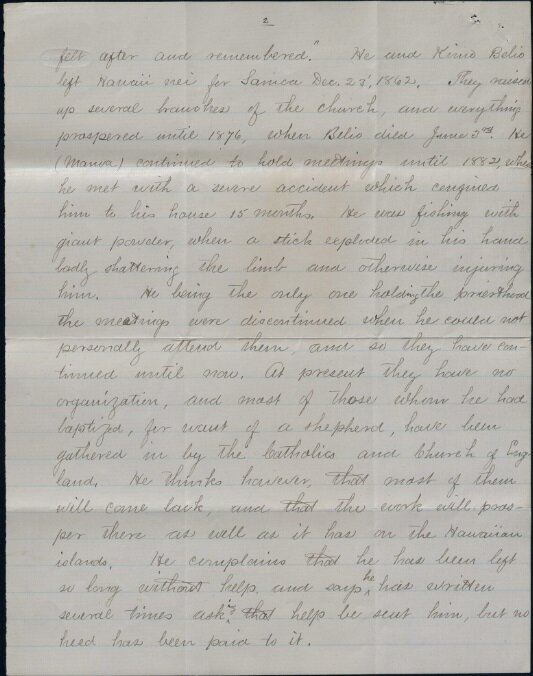 2
felt after and remembered." He and Kimo Belio
left Hawaii nei for Samoa Dec. 23', 1862. They raised
up several branches of the church, and everything
prospered until 1876, when Belio died June 3rd. He
(Manoa) continued to hold meetings until 1882, when
he met with a severe accident which confined
him to his house 15 months. He was fishing with
giant powder, when a stick exploded in his hand
badly shattering the limb and otherwise injuring
him. He being the only one holding the priesthood
the meetings were discontinued when he could not
personally attend them, and so they have con-
tinued until now. At present they have no
organization, and most of those whom he had
baptized, for want of a shepherd, have been
gathered in by the Catholics and Church of Eng-
land. He thinks however, that most of them
will come back, and that the work will pros-
per there as well as it has on the Hawaiian
islands. He complains that he has been left
so long without help, and says he has written
several times asking that help be sent him, but no
heed has been paid to it.